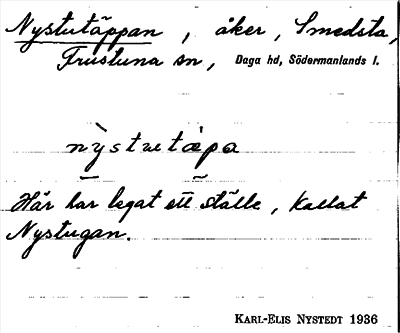 Nystutäppan, åker, Smedsta,
Frustuna sn, Daga hd, Södermanlands l.
nỳstutàpa
Här har legat ett ställe, kallat
Nystugan.
KARL-ELIS NYSTEDT 1936